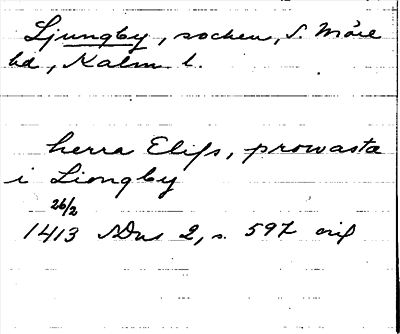 Ljungby, socken, S. Möre
hd, Kalm l.
herra Elifs, prowasta
i Liongby
26/2
1413 SDns 2, s. 597 orig